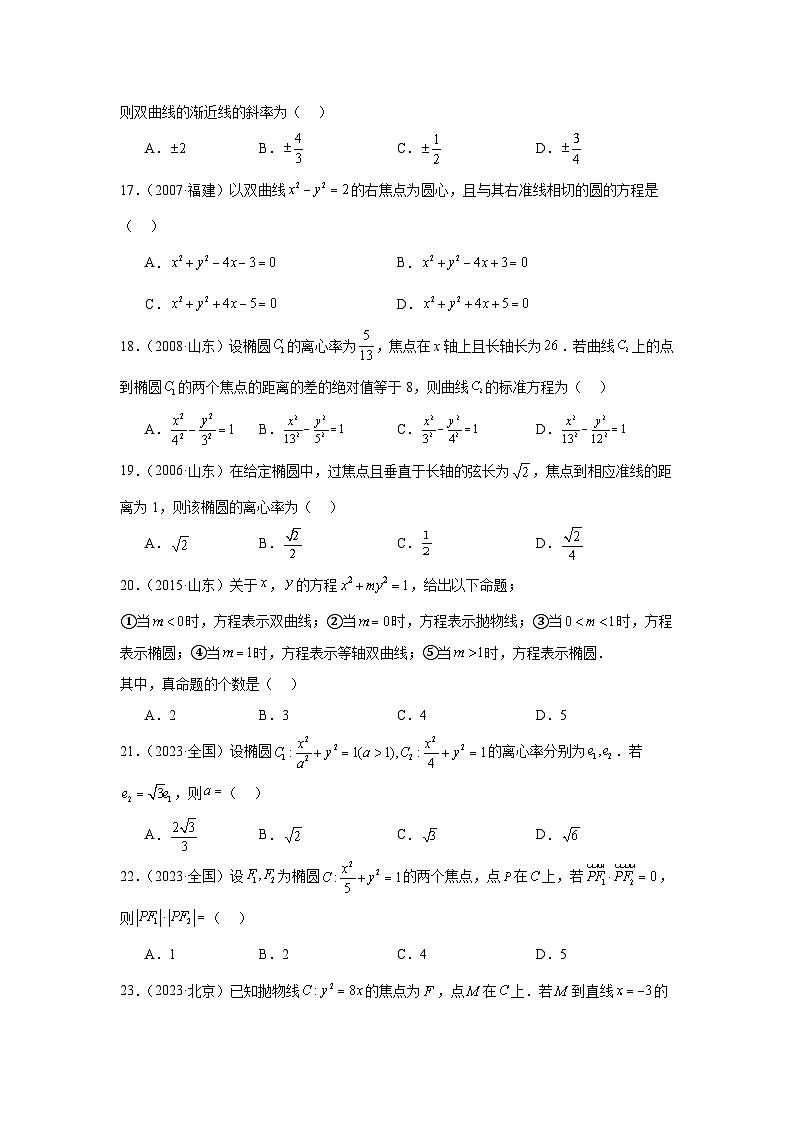 则双曲线的渐近线的斜率为（　）
A．±2　B．±4/3　C．±1/2　D．±3/4
17.（2007·福建）以双曲线x² − y² = 2的右焦点为圆心，且与其右准线相切的圆的方程是
（　）
A．x² + y² − 4x − 3 = 0　B．x² + y² − 4x + 3 = 0
C．x² + y² + 4x − 5 = 0　D．x² + y² + 4x + 5 = 0
18.（2008·山东）设椭圆C₁的离心率为5/13，焦点在x轴上且长轴长为26．若曲线C₂上的点
到椭圆C₁的两个焦点的距离的差的绝对值等于8，则曲线C₂的标准方程为（　）
A．x²/4² − y²/3² = 1　B．x²/13² − y²/5² = 1　C．x²/3² − y²/4² = 1　D．x²/13² − y²/12² = 1
19.（2006·山东）在给定椭圆中，过焦点且垂直于长轴的弦长为√2，焦点到相应准线的距
离为1，则该椭圆的离心率为（　）
A．√2　B．√2/2　C．1/2　D．√2/4
20.（2015·山东）关于x，y的方程x² + my² = 1，给出以下命题；
①当m < 0时，方程表示双曲线；②当m = 0时，方程表示抛物线；③当0 < m < 1时，方程
表示椭圆；④当m = 1时，方程表示等轴双曲线；⑤当m > 1时，方程表示椭圆．
其中，真命题的个数是（　）
A．2　B．3　C．4　D．5
21.（2023·全国）设椭圆C₁ : x²/a² + y² = 1(a > 1), C₂ : x²/4 + y² = 1的离心率分别为e₁, e₂．若
e₂ = √3e₁，则a =（　）
A．2√3/3　B．√2　C．√3　D．√6
22.（2023·全国）设F₁, F₂为椭圆C : x²/5 + y² = 1的两个焦点，点P在C上，若PF₁ · PF₂ = 0，
则|PF₁| · |PF₂| =（　）
A．1　B．2　C．4　D．5
23.（2023·北京）已知抛物线C : y² = 8x的焦点为F，点M在C上．若M到直线x = −3的